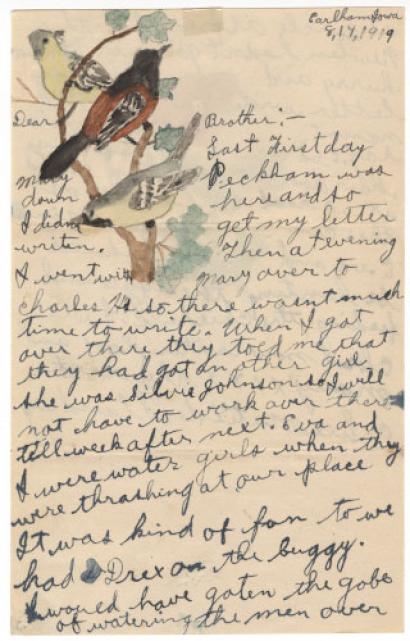 Earlham, Iowa
8,17,1919
Dear Brother:-
Last First day
Mary Peckham was
down here and so
I didnt get my letter
writen. Then at evening
I went with Mary over to
Charles Hs so there wasnt much
time to write. When I got
over there they toed me that
they had got an other girl
she was Silvie Johnson so I will
not have to work over there
till week after next. Eva and
I were water girls when they
were thrashing at our place
It was kind of fon to we
had Drex on the buggy.
I would have goten the gobe
of watering the men over